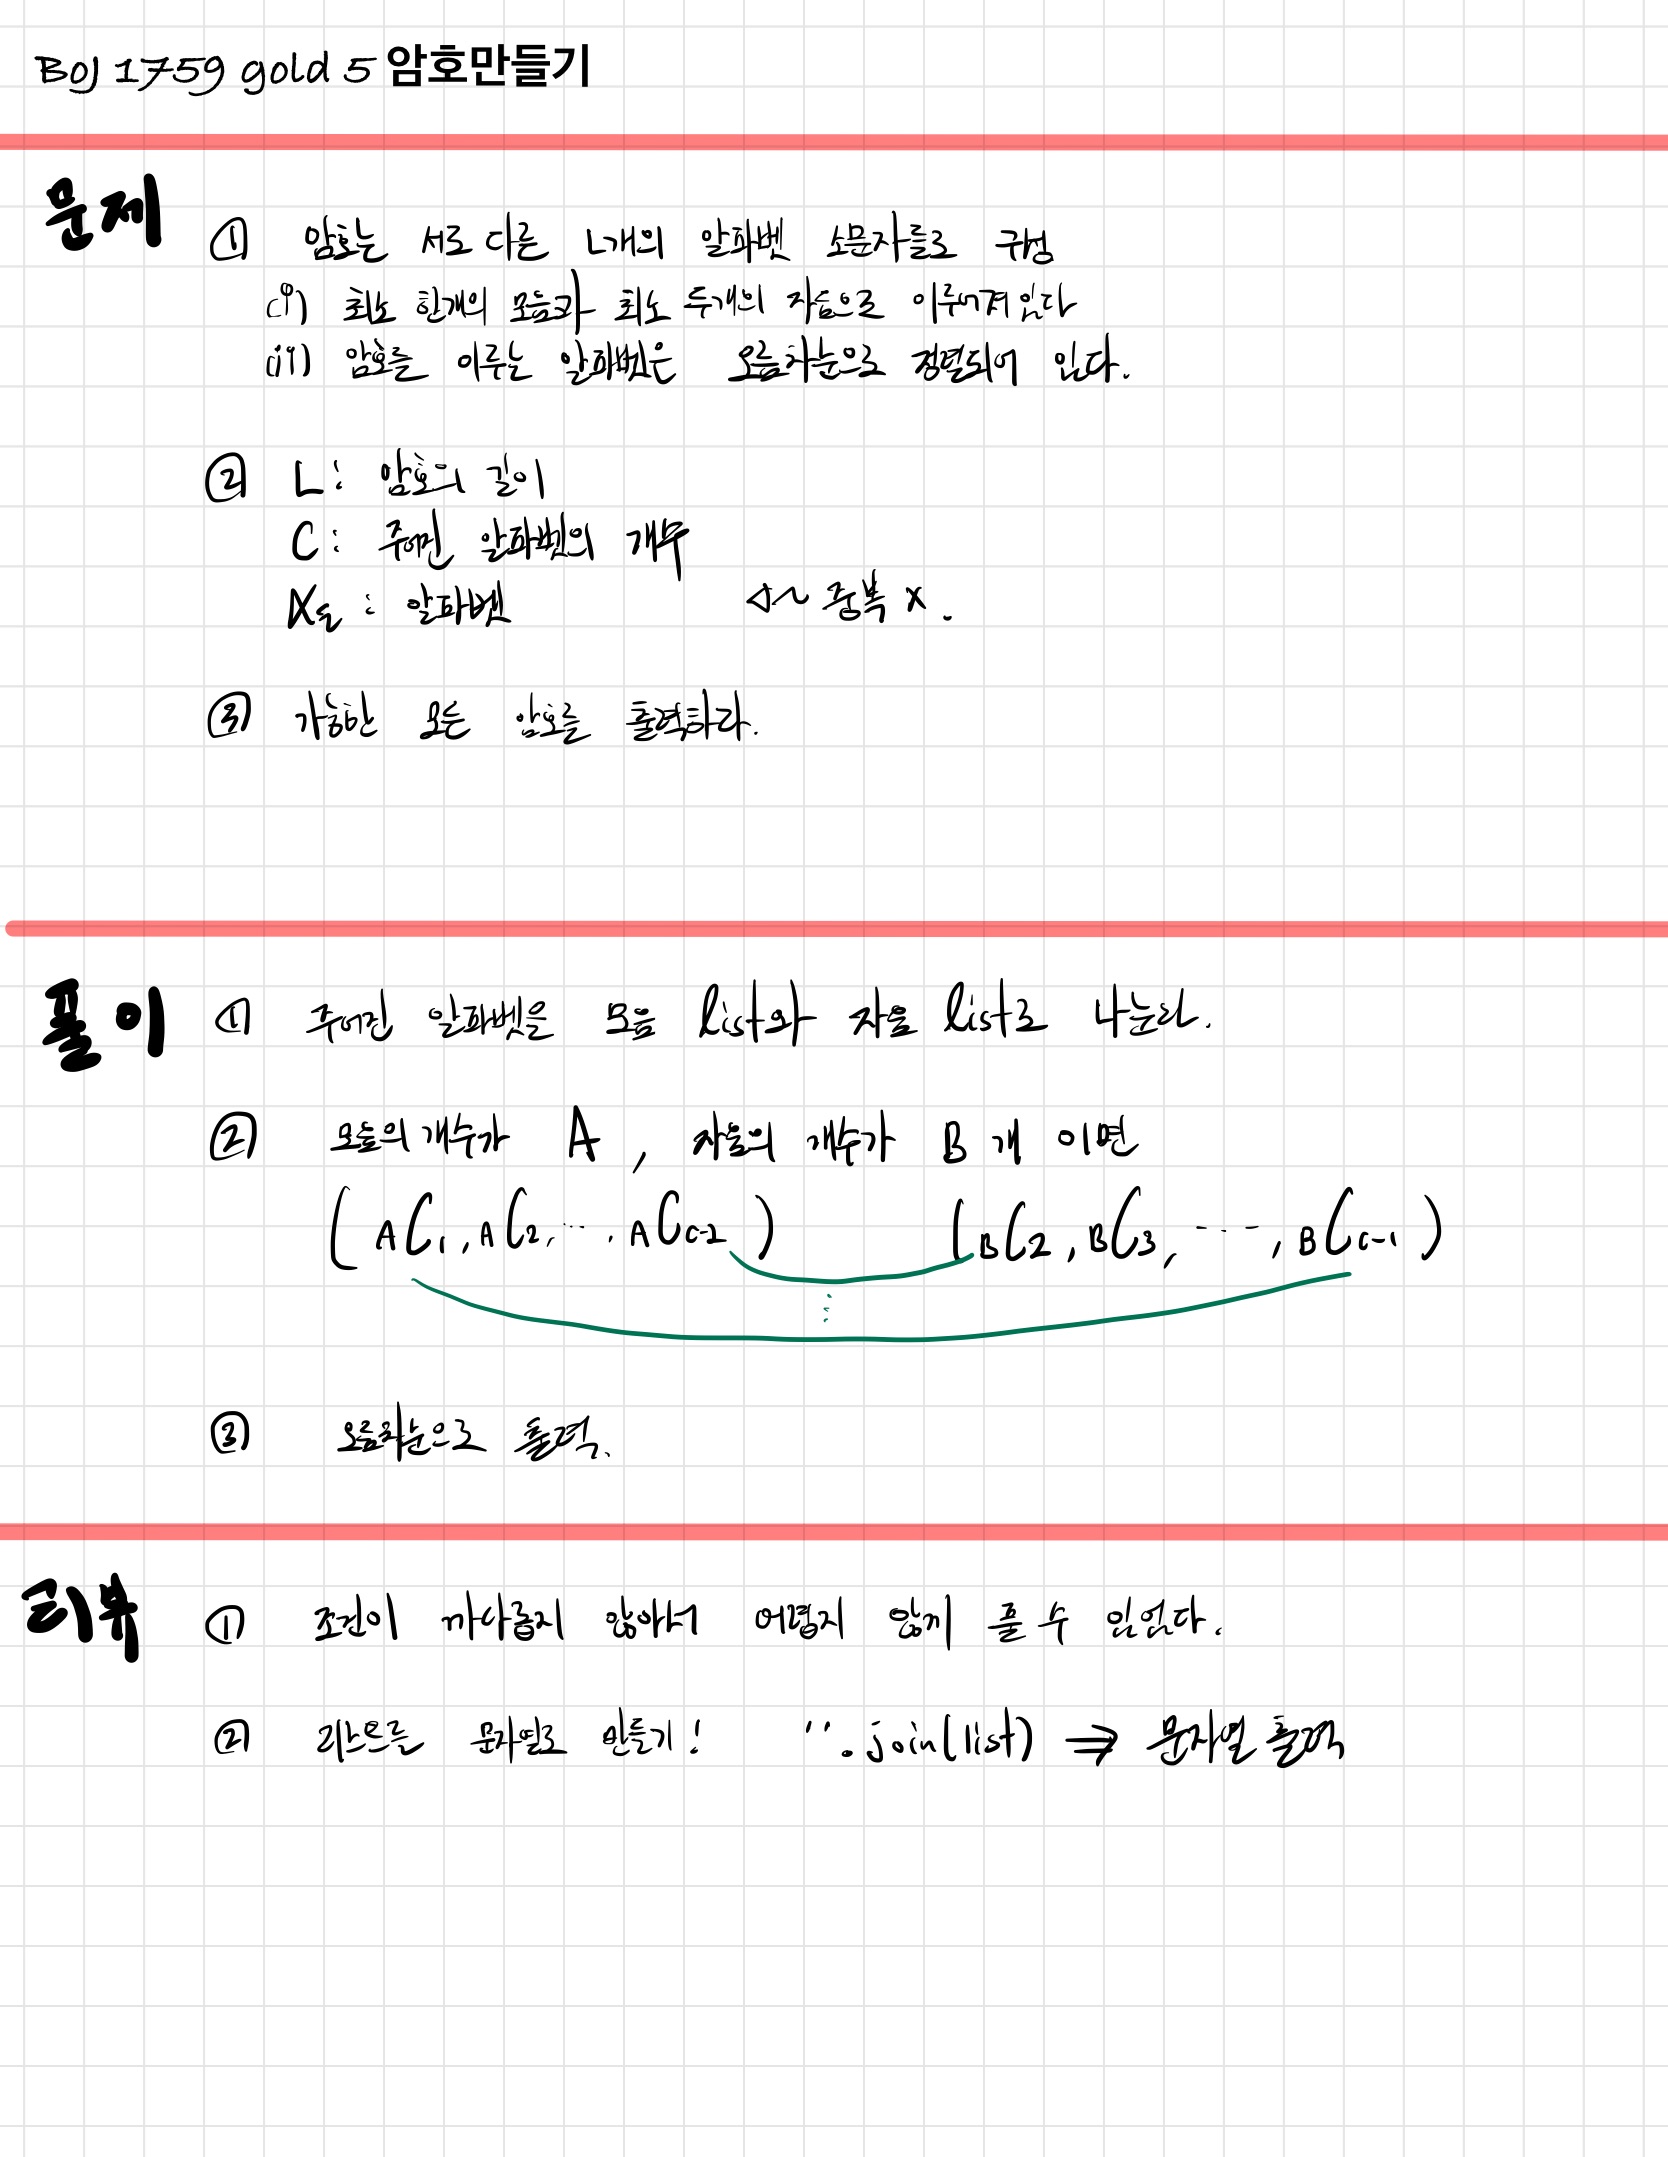 BOJ 1759 gold 5 암호만들기
문제
① 암호는 서로 다른 L개의 알파벳 소문자들로 구성
(i) 최소 한개의 모음과 최소 두개의 자음으로 이루어져있다
(ii) 암호를 이루는 알파벳은 오름차순으로 정렬되어 있다.
② L : 암호의 길이
C : 주어진 알파벳의 개수
X들 : 알파벳 중복 x.
③ 가능한 모든 암호를 출력하라.
풀이
① 주어진 알파벳을 모음 list와 자음 list로 나눈다.
② 모음의 개수가 A , 자음의 개수가 B 개 이면
( AC1, AC2, ..., ACc-2 ) ( BC2, BC3, ----, BCc-1 )
③ 오름차순으로 출력.
리뷰
① 조건이 까다롭지 않아서 어렵지 않게 풀 수 있었다.
② 리스트를 문자열로 만들기! ''.join(list) ⇒ 문자열 출력